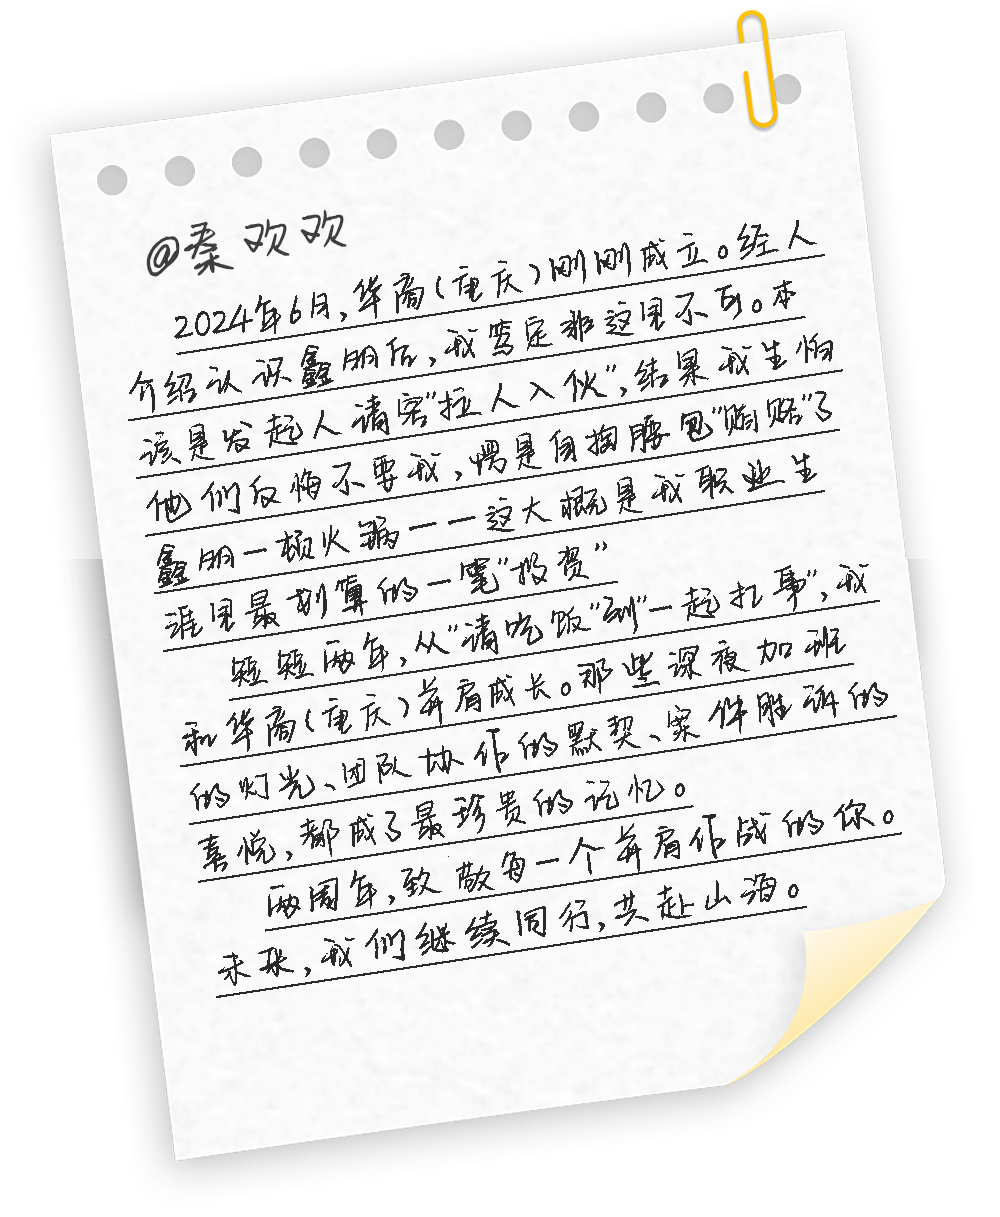 @秦欢欢
2024年6月,华商(重庆)刚刚成立。经人
介绍认识鑫朋后,我笃定非这里不可。本
该是发起人请客"拉人入伙",结果我生怕
他们反悔不要我,愣是自掏腰包"贿赂"了
鑫朋一顿火锅——这大概是我职业生
涯里最划算的一笔"投资"
短短两年,从"请吃饭"到"一起扛事",我
和华商(重庆)并肩成长。那些深夜加班
的灯光、团队协作的默契、案件胜诉的
喜悦,都成了最珍贵的记忆。
两周年,致敬每一个并肩作战的你。
未来,我们继续同行,共赴山海。